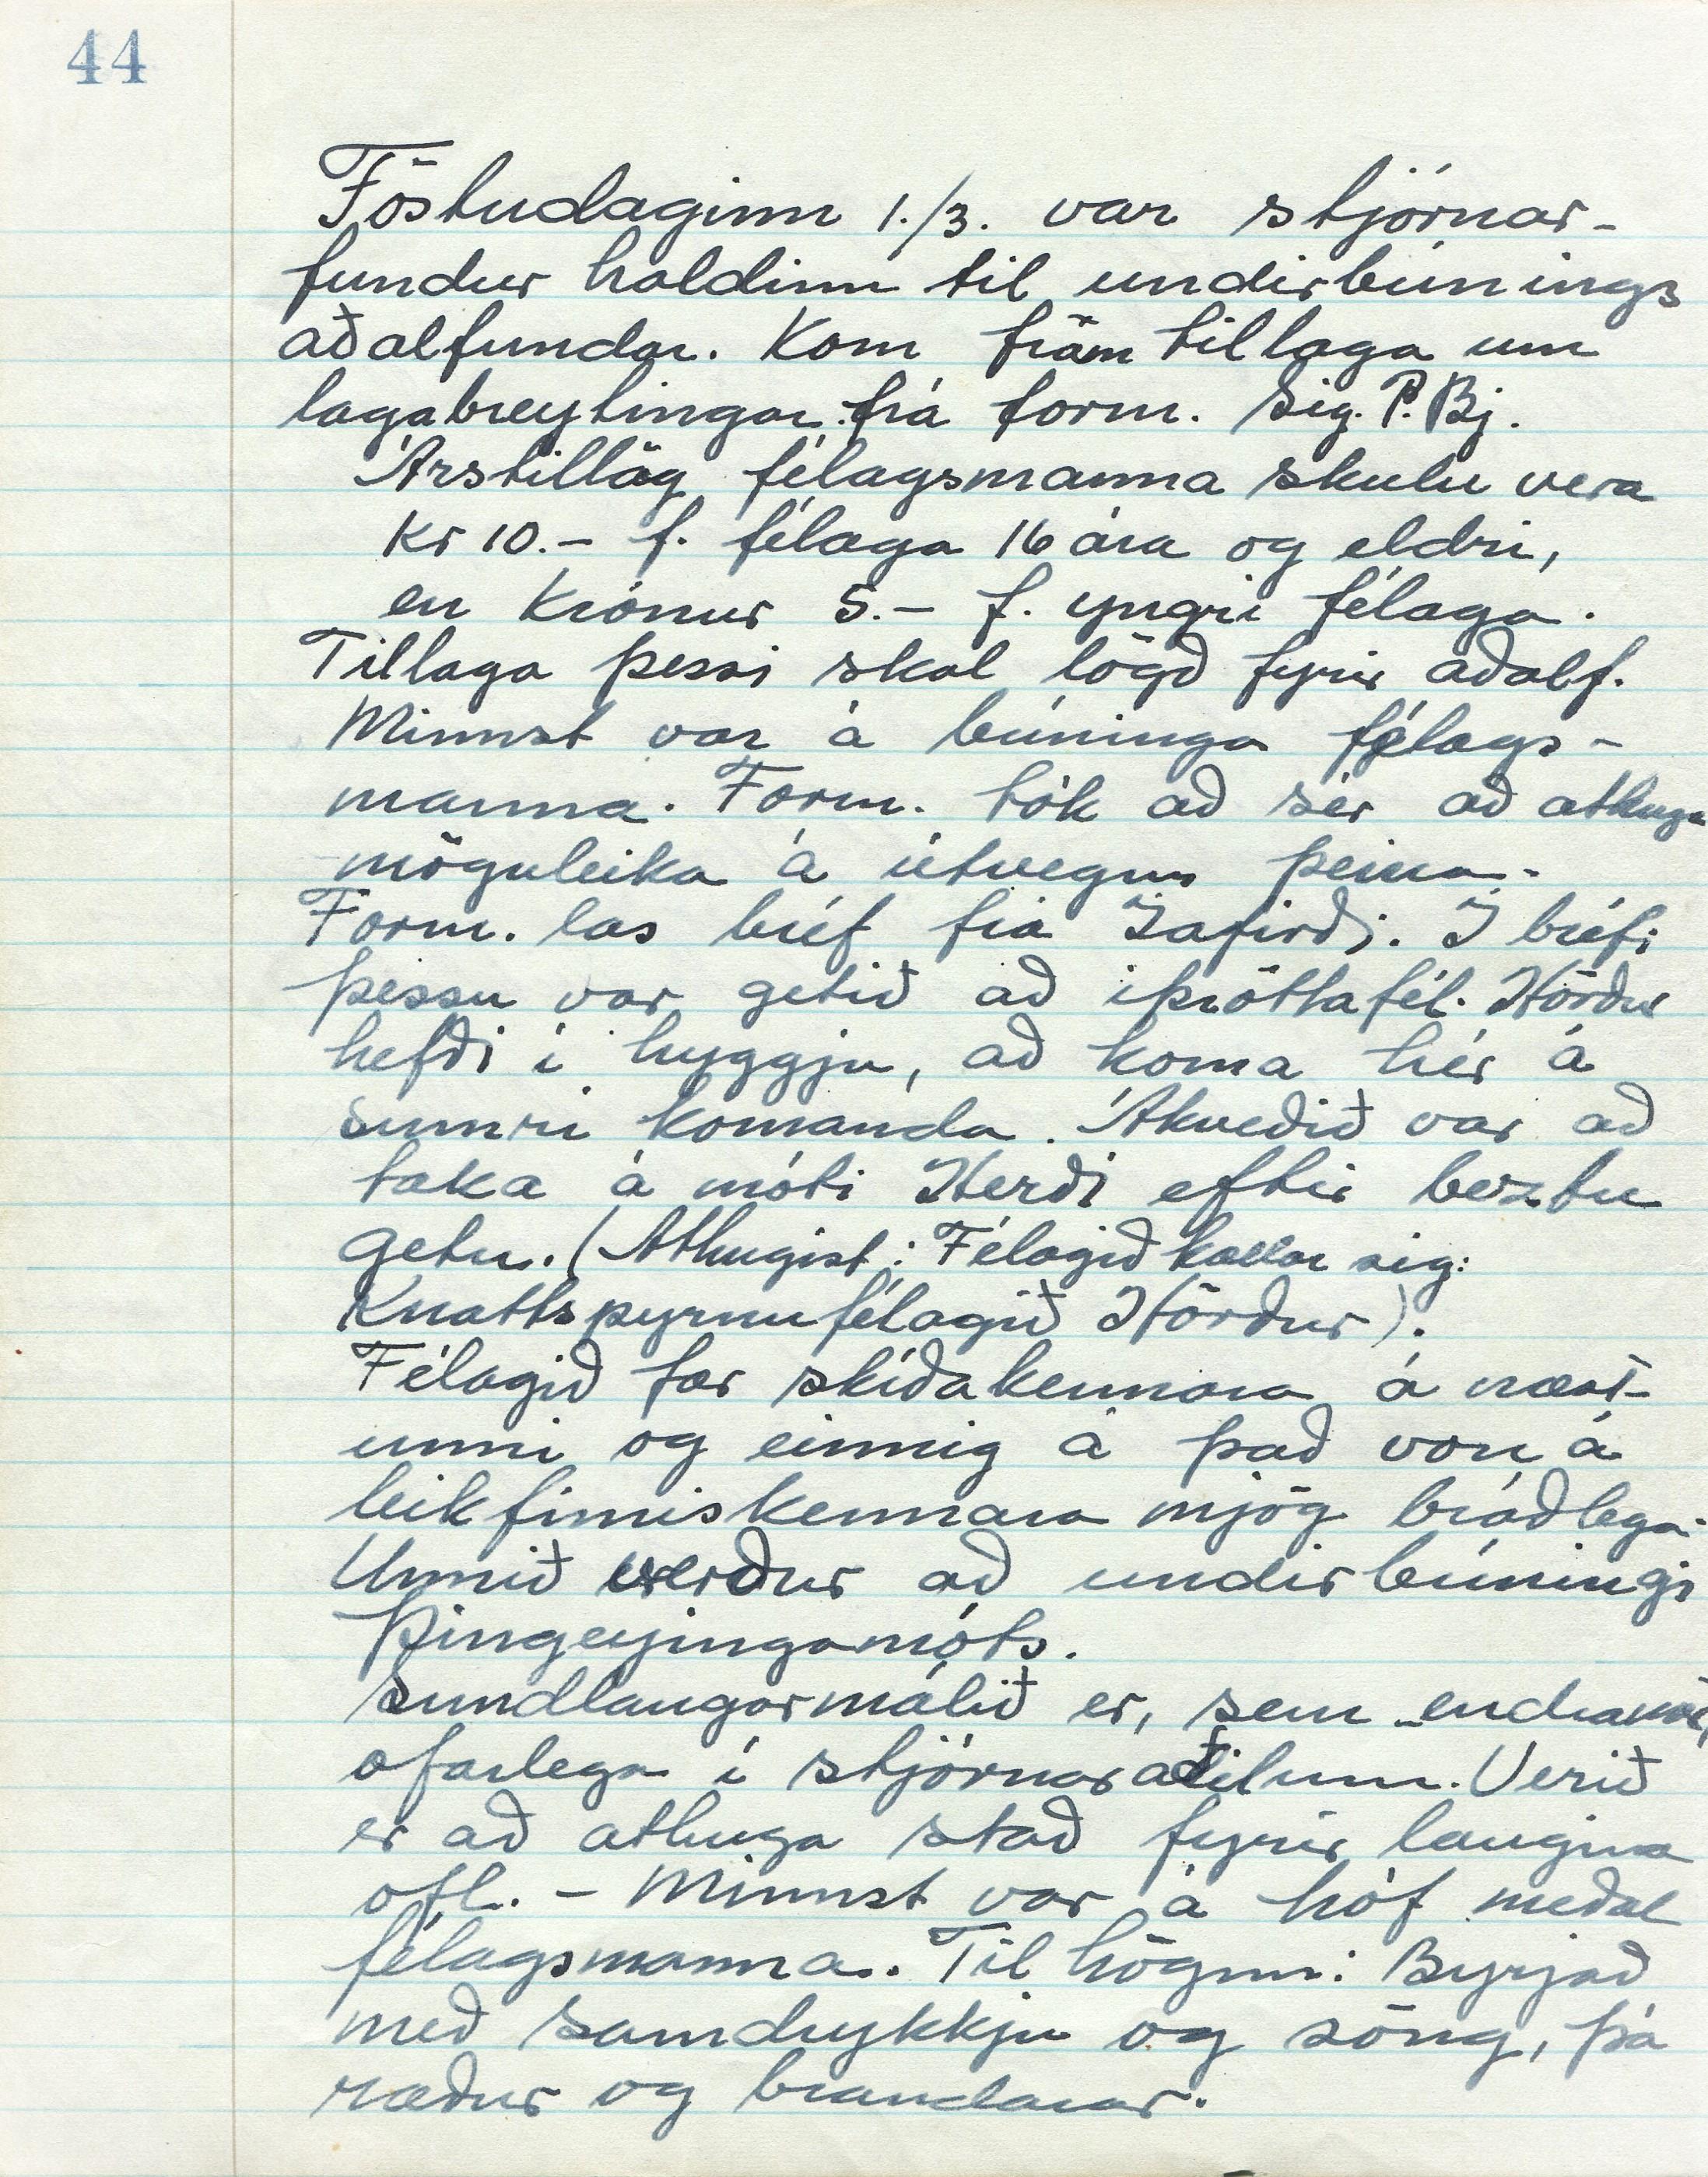 44
Föstudaginn 1./3. var stjórnar-
fundur haldinn til undirbúnings
aðalfundar. Kom fram tillaga um
lagabreytingar frá form. Sig. P. Bj.
Árstillög félagsmanna skulu vera
Kr 10.- f. félaga 16 ára og eldri,
en Krónur 5.- f. yngri félaga.
Tillaga þessi skal lögð fyrir aðalf.
Minnst var á búninga félags-
manna. Form. tók að sér að athuga
möguleika á útvegun þeirra.
Form. las bréf frá Ísafirði. Í bréfi
þessu var getið að íþróttafél. Hörður
hefði í hyggju, að koma hér á
sumri komanda. Ákveðið var að
taka á móti Herði eftir beztu
getu. (Athugist: Félagið kallar sig:
Knattspyrnufélagið Hörður).
Félagið fær skíðakennara á næst-
unni og einnig á það von á
leikfimiskennara mjög bráðlega.
Unnið verður að undirbúningi
Þingeyingamóts.
Sundlaugarmálið er, sem endranær,
ofarlega í stjórnaraðilum. Verið
er að athuga stað fyrir laugina
ofl. - Minnst var á hóf meðal
félagsmanna. Tilhögun: Byrjað
með samdrykkju og söng, þá
ræður og brandarar.